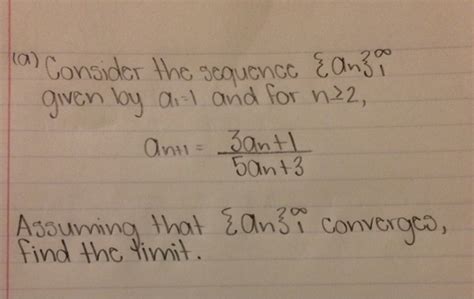 (a) Consider the sequence {an}₁^∞
given by a₁=1 and for n≥2,
an+1 = 3an+1
5an+3
Assuming that {an}₁^∞ converges,
find the limit.